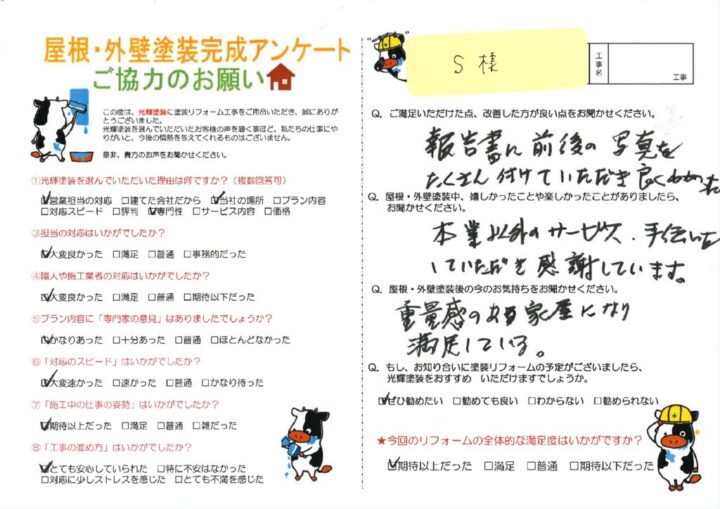 屋根・外壁塗装完成アンケート
ご協力のお願い
この度は、光輝塗装に塗装リフォーム工事をご用命いただき、誠にありが
とうございました。
光輝塗装を選んでいただいたお客様の声を聴く事ほど、私たちの仕事にや
りがいと、今後の情熱を与えてくれるものはございません。
是非、貴方のお声をお聞かせください。
①光輝塗装を選んでいただいた理由は何ですか？（複数回答可）
☑営業担当の対応 □建てた会社だから ☑当社の場所 □プラン内容
□対応スピード □評判 ☑専門性 □サービス内容 □価格
③担当の対応はいかがでしたか？
☑大変良かった □満足 □普通 □事務的だった
④職人や施工業者の対応はいかがでしたか？
☑大変良かった □満足 □普通 □期待以下だった
⑤プラン内容に「専門家の意見」はありましたでしょうか？
☑かなりあった □十分あった □普通 □ほとんどなかった
⑥「対応のスピード」はいかがでしたか？
☑大変速かった □速かった □普通 □かなり待った
⑦「施工中の仕事の姿勢」はいかがでしたか？
☑期待以上だった □満足 □普通 □雑だった
⑧「工事の進め方」はいかがでしたか？
☑とても安心していられた □特に不安はなかった
□対応に少しストレスを感じた □とても不満を感じた
S 様
工事名
工事
Q. ご満足いただけた点、改善した方が良い点をお聞かせください。
報告書に前後の写真を
たくさん付けていただき良くわかった
Q. 屋根・外壁塗装中、嬉しかったことや楽しかったことがありましたら、
お聞かせください。
本業以外のサービス、手伝いを
していただき感謝しています。
Q. 屋根・外壁塗装後の今のお気持ちをお聞かせください。
重量感のある家屋になり
満足している。
Q. もし、お知り合いに塗装リフォームの予定がございましたら、
光輝塗装をおすすめ いただけますでしょうか。
☑ぜひ勧めたい □勧めても良い □わからない □勧められない
★今回のリフォームの全体的な満足度はいかがですか？
☑期待以上だった □満足 □普通 □期待以下だった